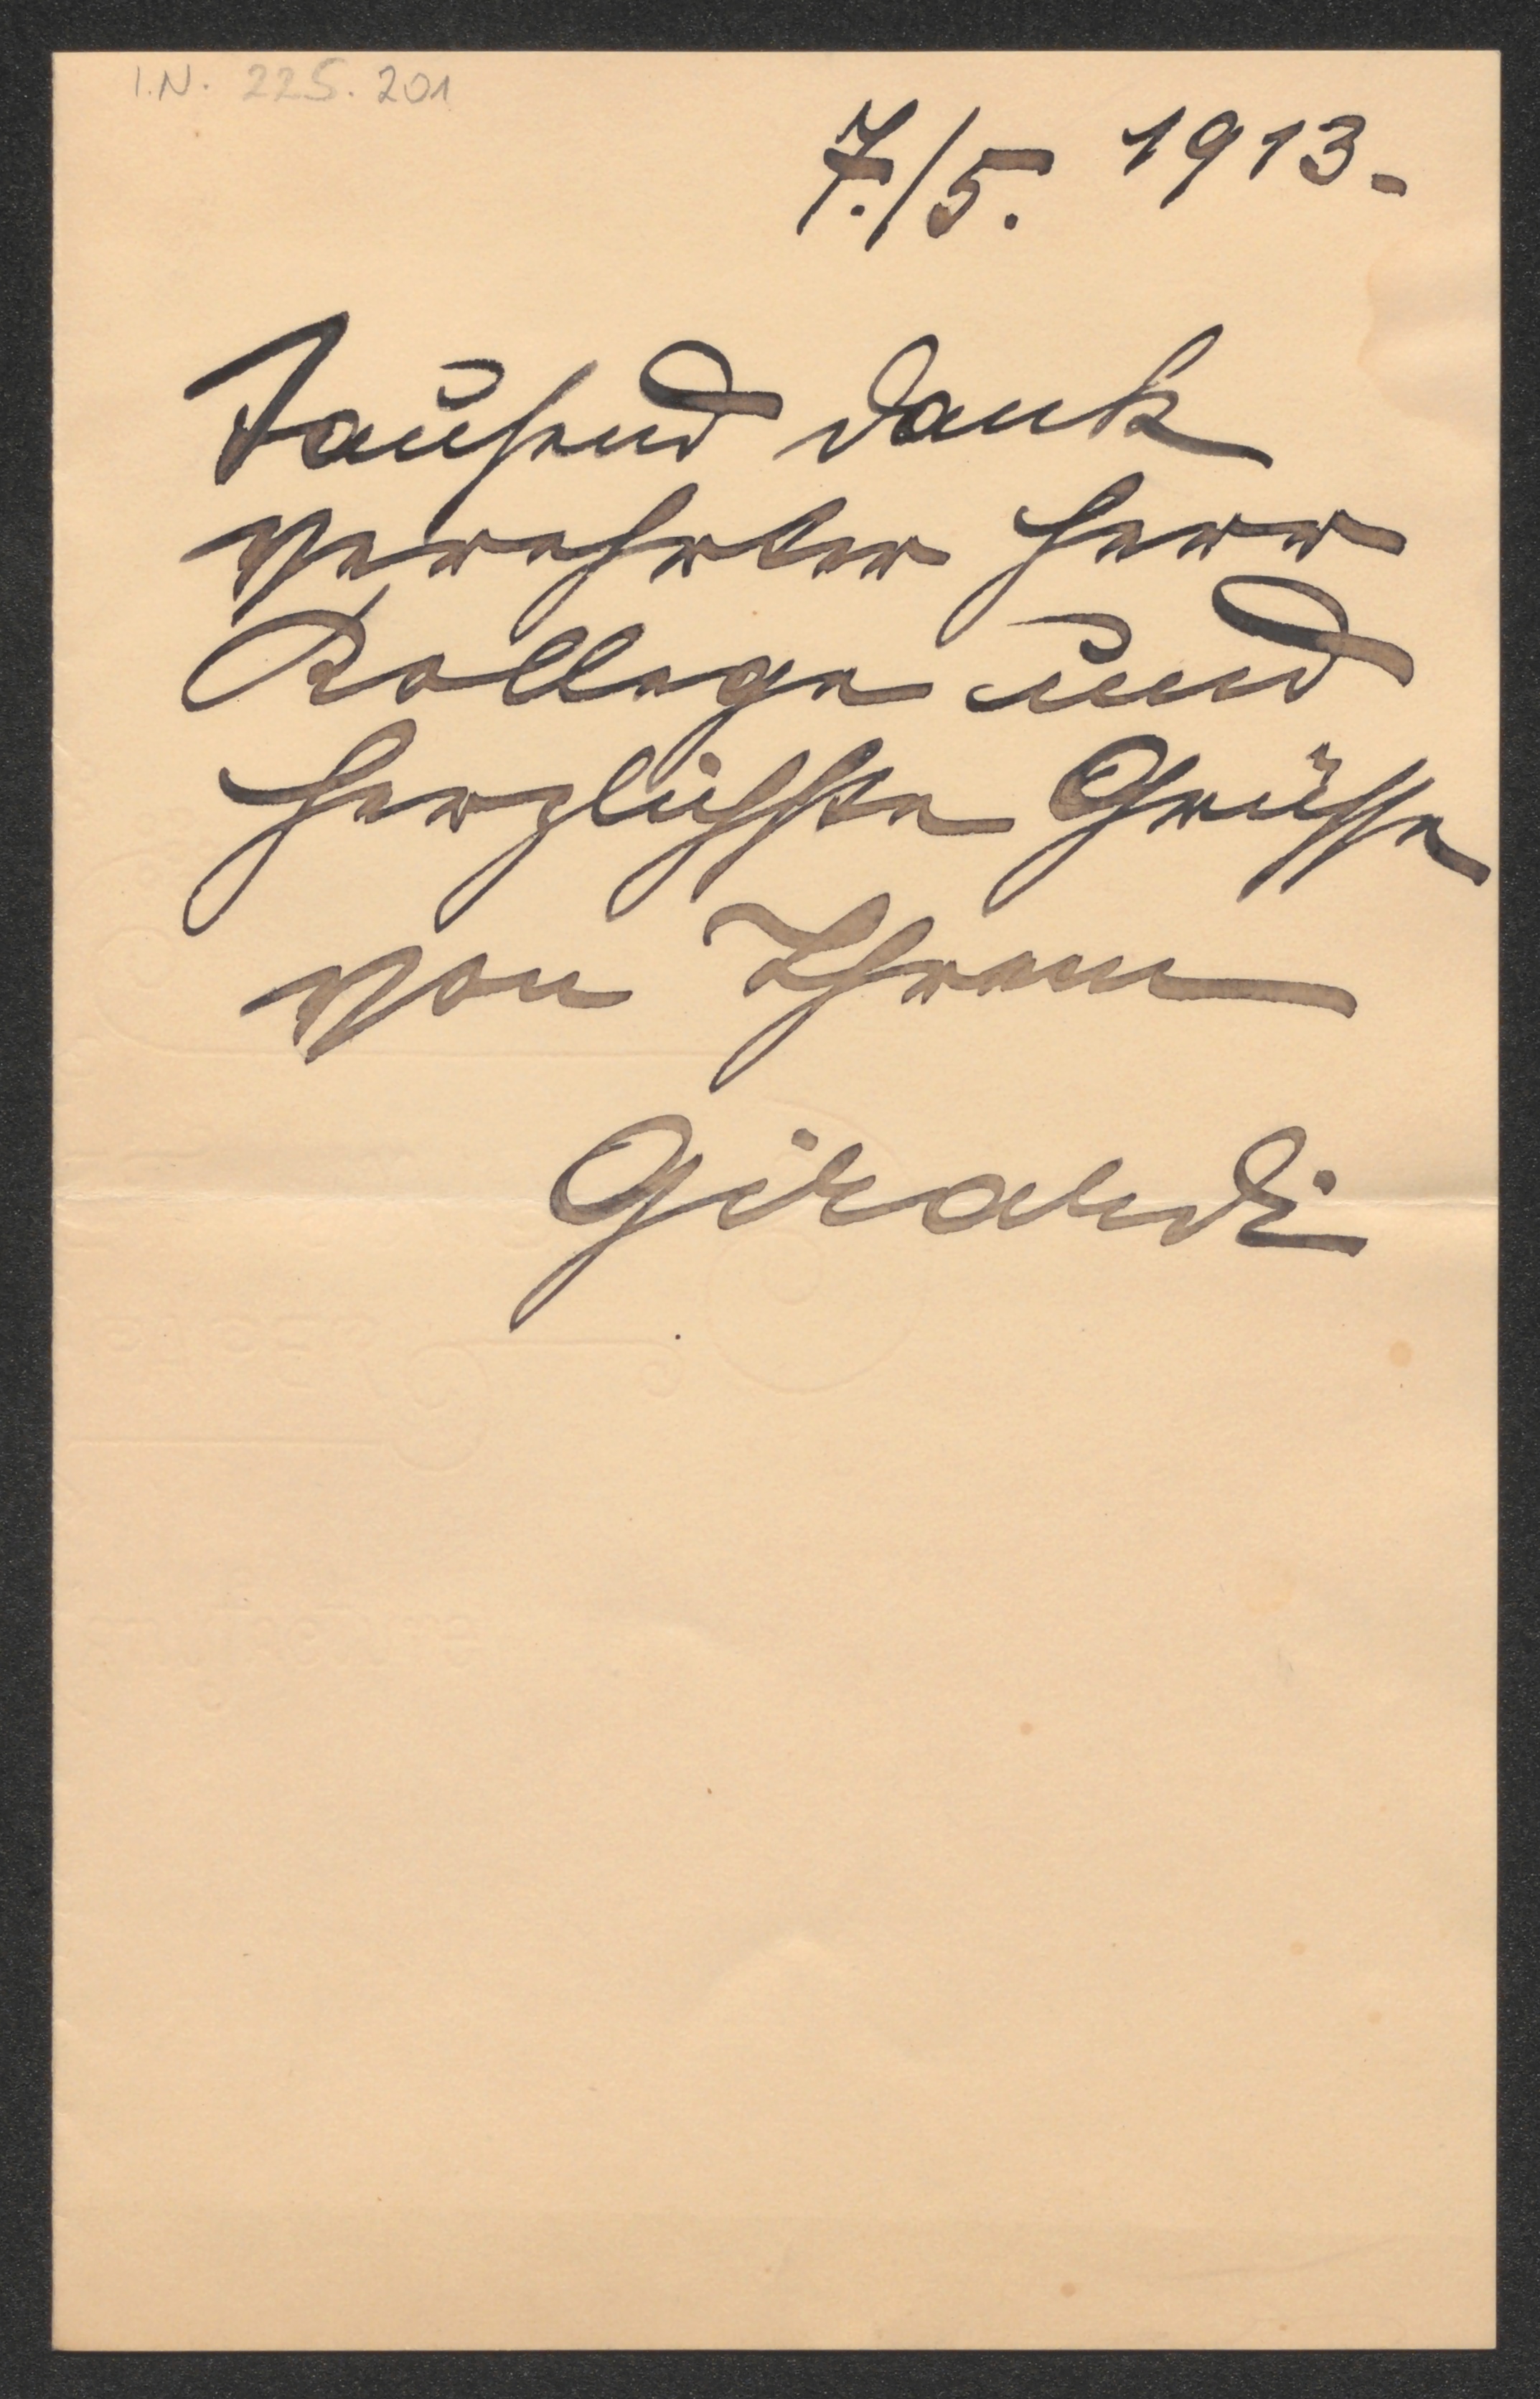 I.N. 225.201
7./5. 1913.-
Tausend Dank
verehrter Herr
Kollege und
herzlichste Grüsse
von Ihrem
Girardi